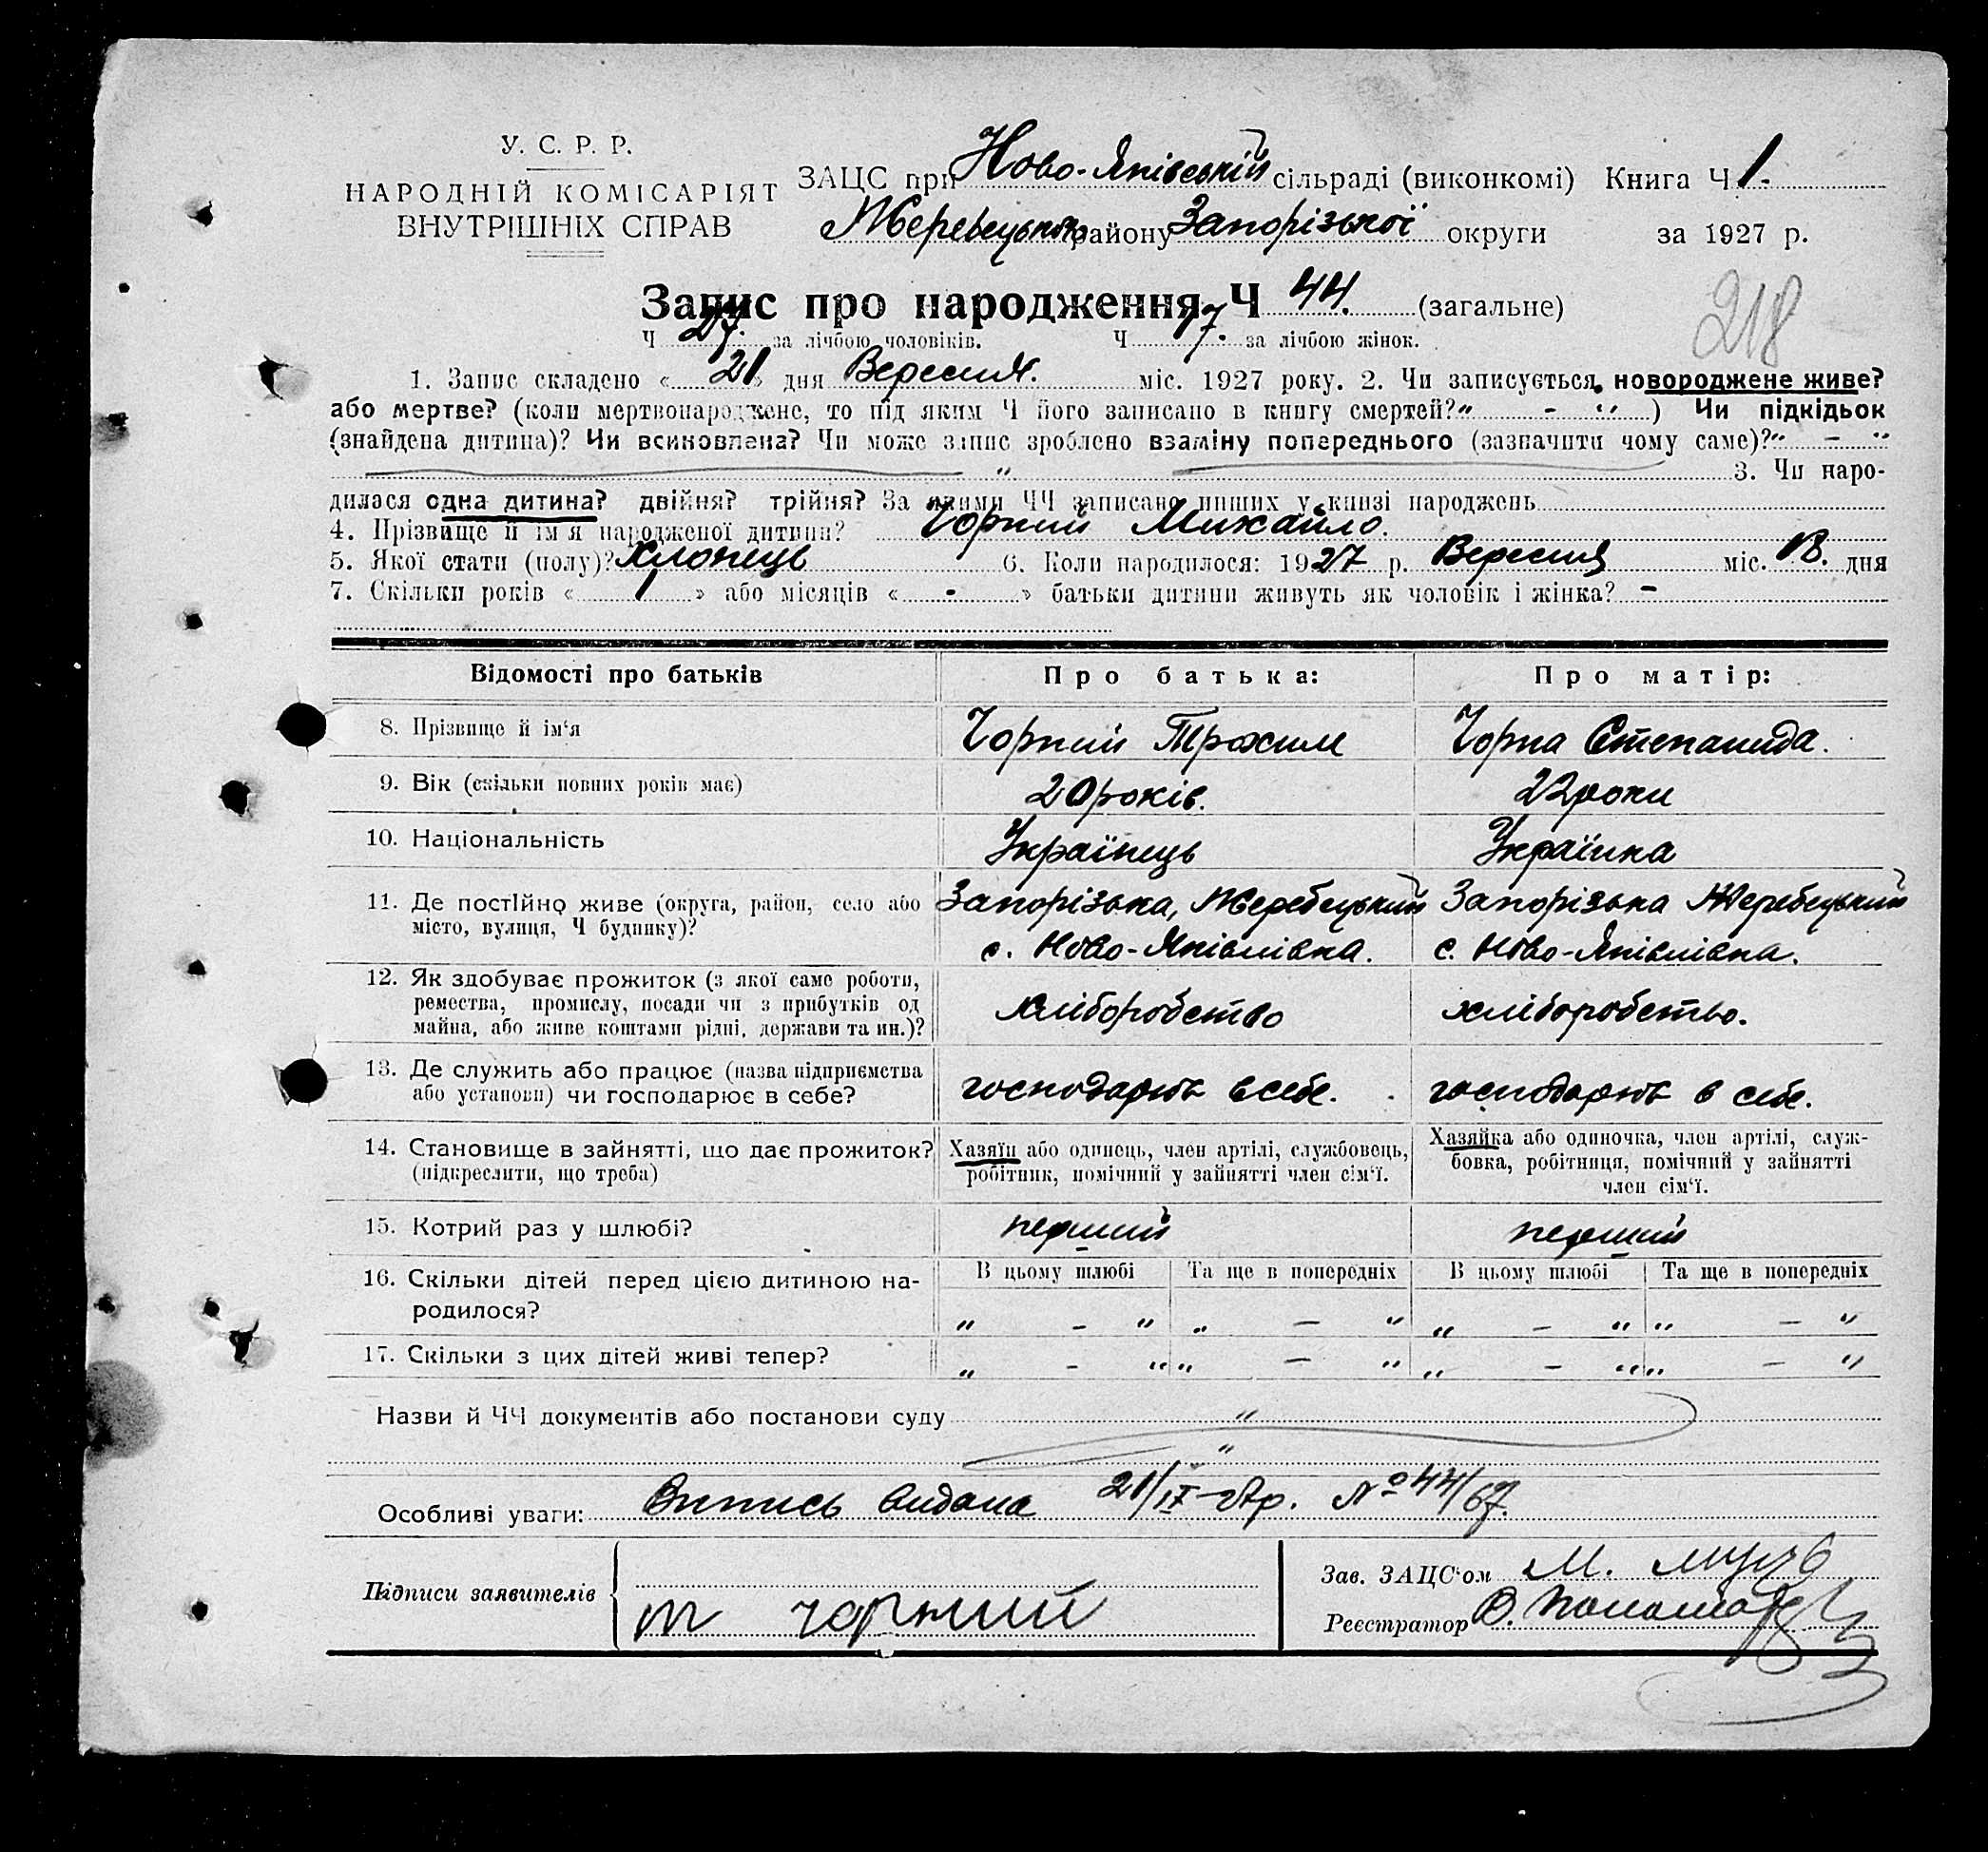 У. С. Р. Р.
НАРОДНІЙ КОМІСАРІЯТ
ВНУТРІШНІХ СПРАВ
ЗАЦС при Ново-Яківській сільраді (виконкомі) Книга Ч 1.
Жеребецького району Запорізької округи за 1927 р.
Запис про народження Ч 44. (загальне)
218
Ч 27. за лічбою чоловіків. Ч 17. за лічбою жінок.
1. Запис складено « 21 » дня Вересня. міс. 1927 року. 2. Чи записується новороджене живе?
або мертве? (коли мертвонароджене, то під яким Ч його записано в книгу смертей? „ - “ ) Чи підкідьок
(знайдена дитина)? Чи всиновлена? Чи може запис зроблено взаміну попереднього (зазначити чому саме)? „ — “
„ 3. Чи наро-
дилася одна дитина? двійня? трійня? За якими ЧЧ записано инших у книзі народжень
4. Прізвище й ім'я народженої дитини? Чорний Михайло.
5. Якої стати (полу)? хлопець 6. Коли народилося: 1927 р. Вересня міс. 18. дня
7. Скільки років « 1 » або місяців « - » батьки дитини живуть як чоловік і жінка? -
Відомості про батьків Про батька: Про матір:
8. Прізвище й ім'я Чорний Трохим Чорна Степанида.
9. Вік (скільки повних років має) 20 років. 22 роки
10. Національність Українець Українка
11. Де постійно живе (округа, район, село або Запорізька, Жеребецький Запорізька Жеребецький
місто, вулиця, Ч будинку)? с. Ново-Яківлівка. с. Ново-Яківлівка.
12. Як здобуває прожиток (з якої саме роботи,
ремества, промислу, посади чи з прибутків од хліборобство хліборобство.
майна, або живе коштами рідні, держави та ин.)?
13. Де служить або працює (назва підприємства господарют в себе. господарют в себе.
або установи) чи господарює в себе?
14. Становище в зайнятті, що дає прожиток? Хазяїн або одинець, член артілі, службовець, Хазяйка або одиночка, член артілі, служ-
(підкреслити, що треба) робітник, помічний у зайнятті член сім'ї. бовка, робітниця, помічний у зайнятті
член сім'ї.
15. Котрий раз у шлюбі? перший перший
16. Скільки дітей перед цією дитиною на- В цьому шлюбі Та ще в попередніх В цьому шлюбі Та ще в попередніх
родилося? „ - “ „ — “ „ — “ „ — “
17. Скільки з цих дітей живі тепер? „ - “ „ — “ „ — “ „ — “
Назви й ЧЧ документів або постанови суду „
„
Особливі уваги: Випись видана 21/IX-27р. № 44/67.
Підписи заявителів
Зав. ЗАЦС'ом М.
т чорний
Реєстратор